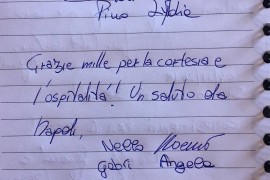 Pino Lydia
Grazie mille per la cortesia e
l'ospitalità!! Un saluto da
Napoli,
Nello
Gabri Angela